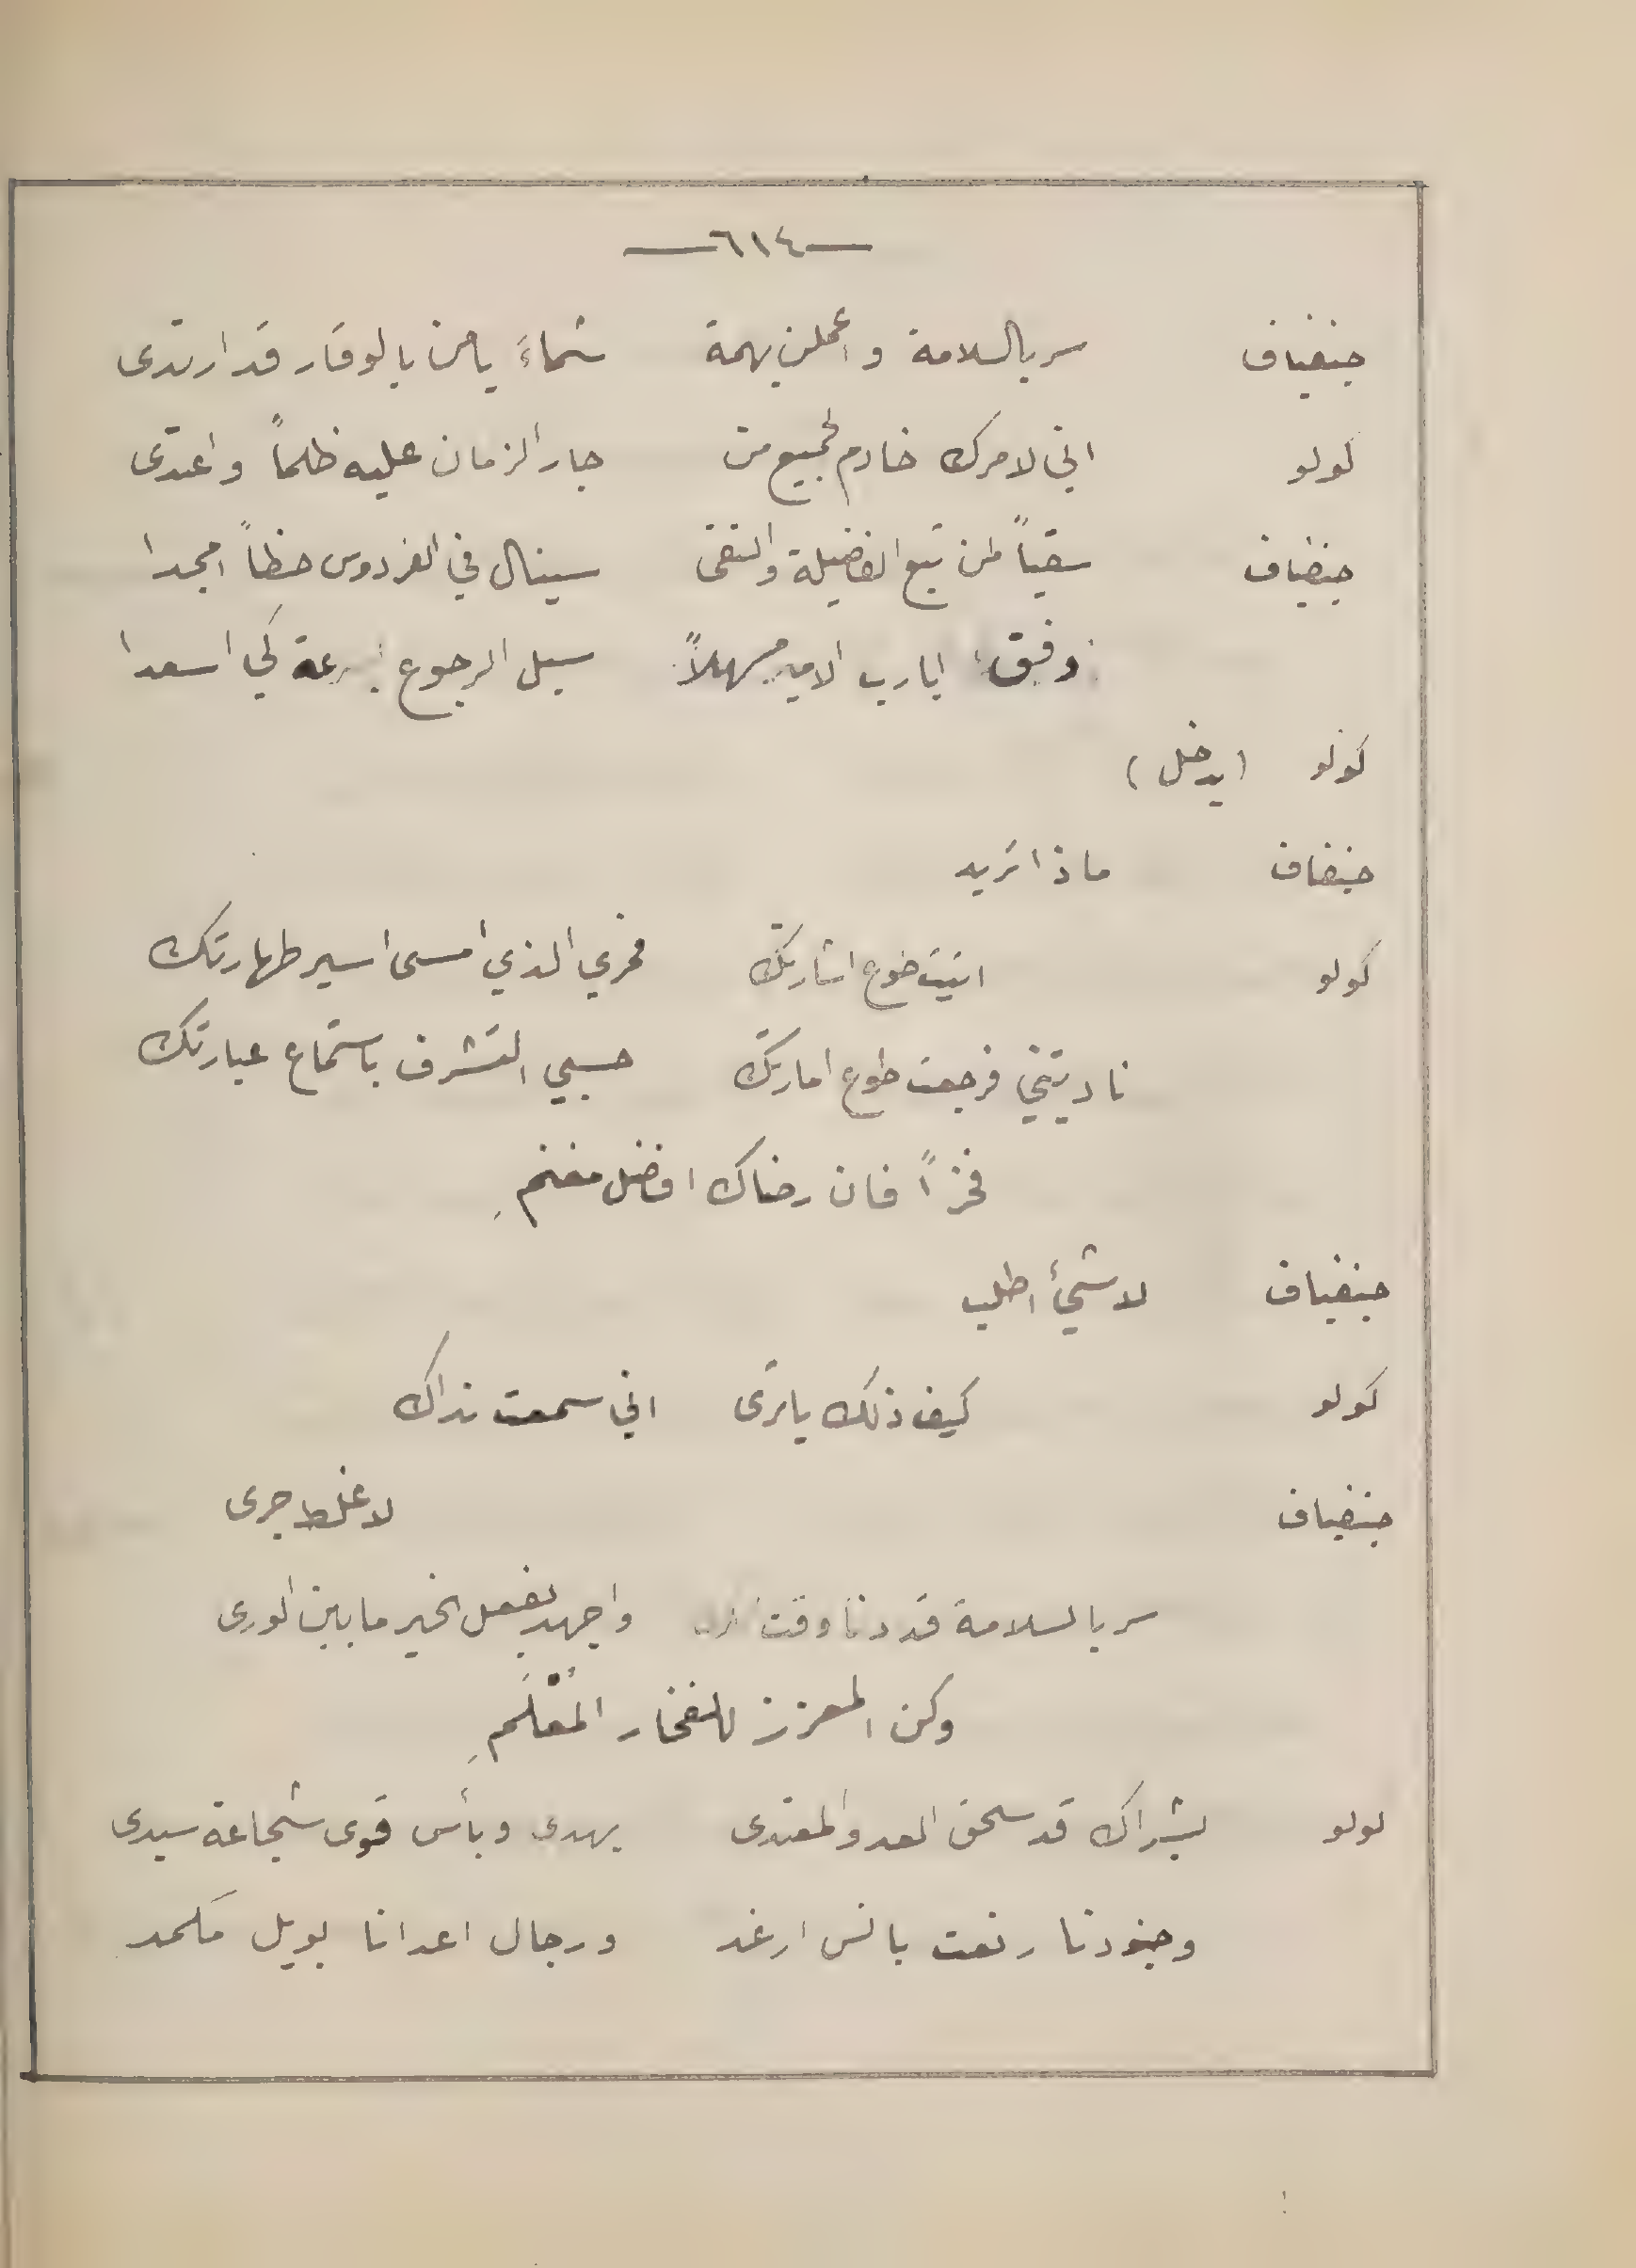 —٦١٤—
جنفياف سر بالسلامة واعملن بهمة شماءَ يا من بالوقار قد ارتدى
لولو اني لامرك خادم لجميع من جار الزمان عليه ظلماً واعتدى
جنفياف سقياً لمن تبع الفضيلة والتقى سينال في الفردوس حظاً امجدا
وفق ايا رب الامير مسهلاً سبل الرجوع بسرعة كي اسعدا
كولو (يدخل)
جنفياف ماذا تريد
كولو اتيت طوع اشارتك فخري الذي امسى اسير طهارتك
ناديتني فرجعت طوع امارتك حسبي التشرف باستماع عبارتك
فخراً فان رضاك افضل مغنمِ
جنفياف لا شيئ اطلب
كولو كيف ذلك يا ترى اني سمعت نداك
جنفياف لا غلط جرى
سر بالسلامة قد دنا وقت واجهد لفعل الخير ما بين الورى
وكن المعزز للفخار المُعْلَمِ
لولو بشراك قد سحق العدو المعتدى بهدى وبأس قوى شجاعة سيدى
وجنودنا رتعت بانس ارغد ورجال اعدانا بويل مكمد